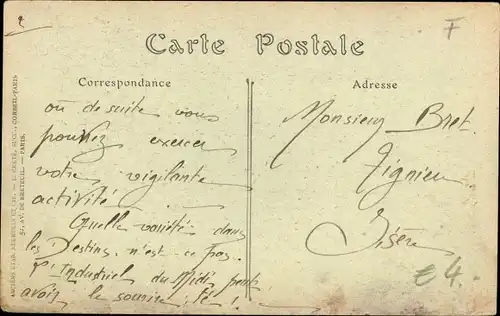 Carte Postale
Correspondance
Adresse
où de suite vous
pourrez exercer
votre vigilante
activité.
Quelle variété dans
les Destins, n'est-ce pas.
L'Industriel du Midi peut
avoir le sourire, lé !
Monsieur Bret.
Tignieu
Isère
€4.